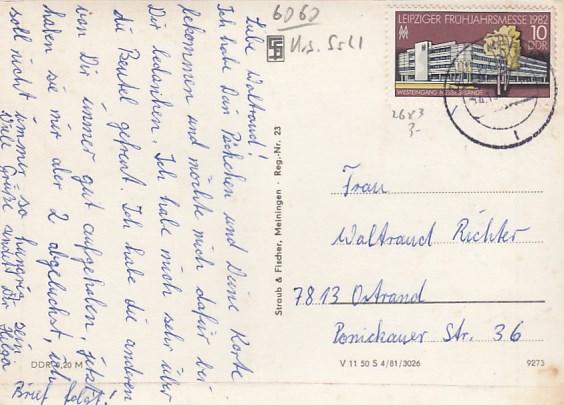 6060
U.s. Ssll
LEIPZIGER FRÜHJAHRSMESSE 1982
10
DDR
WESTEINGANG MESSEGELÄNDE
26x3
3,-
Liebe Waltraud!
Ich habe Dein Päckchen und Deine Karte
bekommen und möchte mich dafür bei
Dir bedanken. Ich habe mich sehr über
die Beutel gefreut. Ich habe die anderen
von Dir immer gut aufgehoben, jetzt
haben sie mir aber 2 abgeluchst, ich
soll nicht immer so hungrig sein
Viele Grüße Helga
Brief folgt!
Straub & Fischer, Meiningen · Reg.-Nr. 23
Frau
Waltraud Richter
7813 Ortrand
Ponickauer Str. 36
DDR 0,20 M
V 11 50 S 4/81/3026
9273